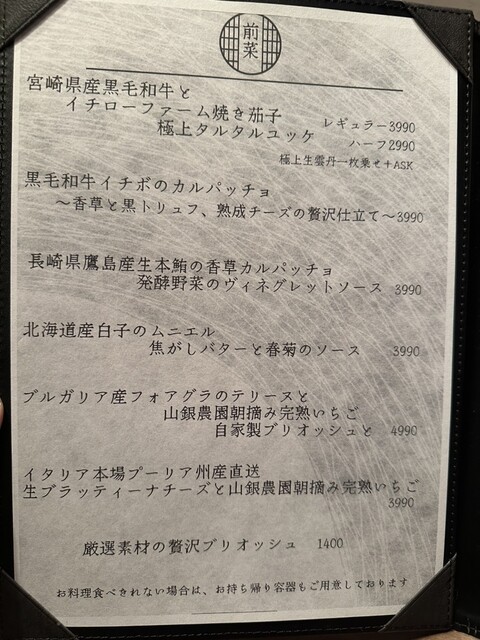 前菜
宮崎県産黒毛和牛と
イチローファーム焼き茄子
極上タルタルユッケ レギュラー3990
ハーフ2990
極上生雲丹一枚乗せ+ASK
黒毛和牛イチボのカルパッチョ
～香草と黒トリュフ、熟成チーズの贅沢仕立て～3990
長崎県鷹島産生本鮪の香草カルパッチョ
発酵野菜のヴィネグレットソース 3990
北海道産白子のムニエル
焦がしバターと春菊のソース 3990
ブルガリア産フォアグラのテリーヌと
山銀農園朝摘み完熟いちご
自家製ブリオッシュと 4990
イタリア本場プーリア州産直送
生ブラッティーナチーズと山銀農園朝摘み完熟いちご
3990
厳選素材の贅沢ブリオッシュ 1400
お料理食べきれない場合は、お持ち帰り容器もご用意しております